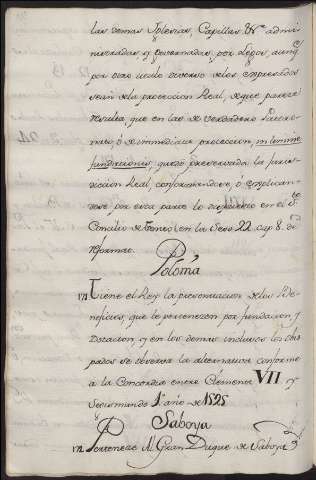 las demas Iglesias, Capillas &c. admi
nistradas y governadas por legos, aunq
por otro titulo diverso de los expresados
sean de la proteccion Real, de que parece
resulta, que en las de verdadero Patro
nato, ó de immediata proteccion, in limine
fundationis, quedó preservada la juris
diccion Real, conformandose, ó explican
dose por esta parte lo dispuesto en el Sto
Concilio de Trento en la Sess. 22. cap. 8. de
reformat.
Polonia
171 Tiene el Rey la presentacion de los Be
neficios, que le pertenecen por fundacion y
Dotacion, y en los demas inclusos los Obis
pados se observa la alternativa conforme
a la Concordia entre Clemente VII y
Sec​ismundo 1º año de 1525
Saboya
172 Pertenece Al Gran Duque de Saboya